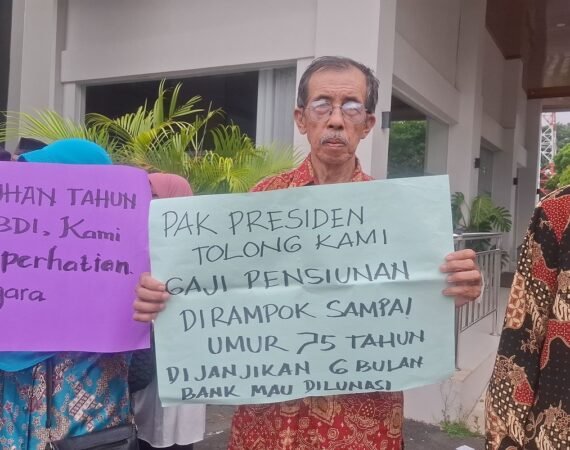 UHAN TAHUN
BDI, Kami
perhatian
gara
PAK PRESIDEN
TOLONG KAMI
GAJI PENSIUNAN
DIRAMPOK SAMPAI
UMUR 75 TAHUN
DIJANJIKAN 6 BULAN
BANK MAU DILUNASI